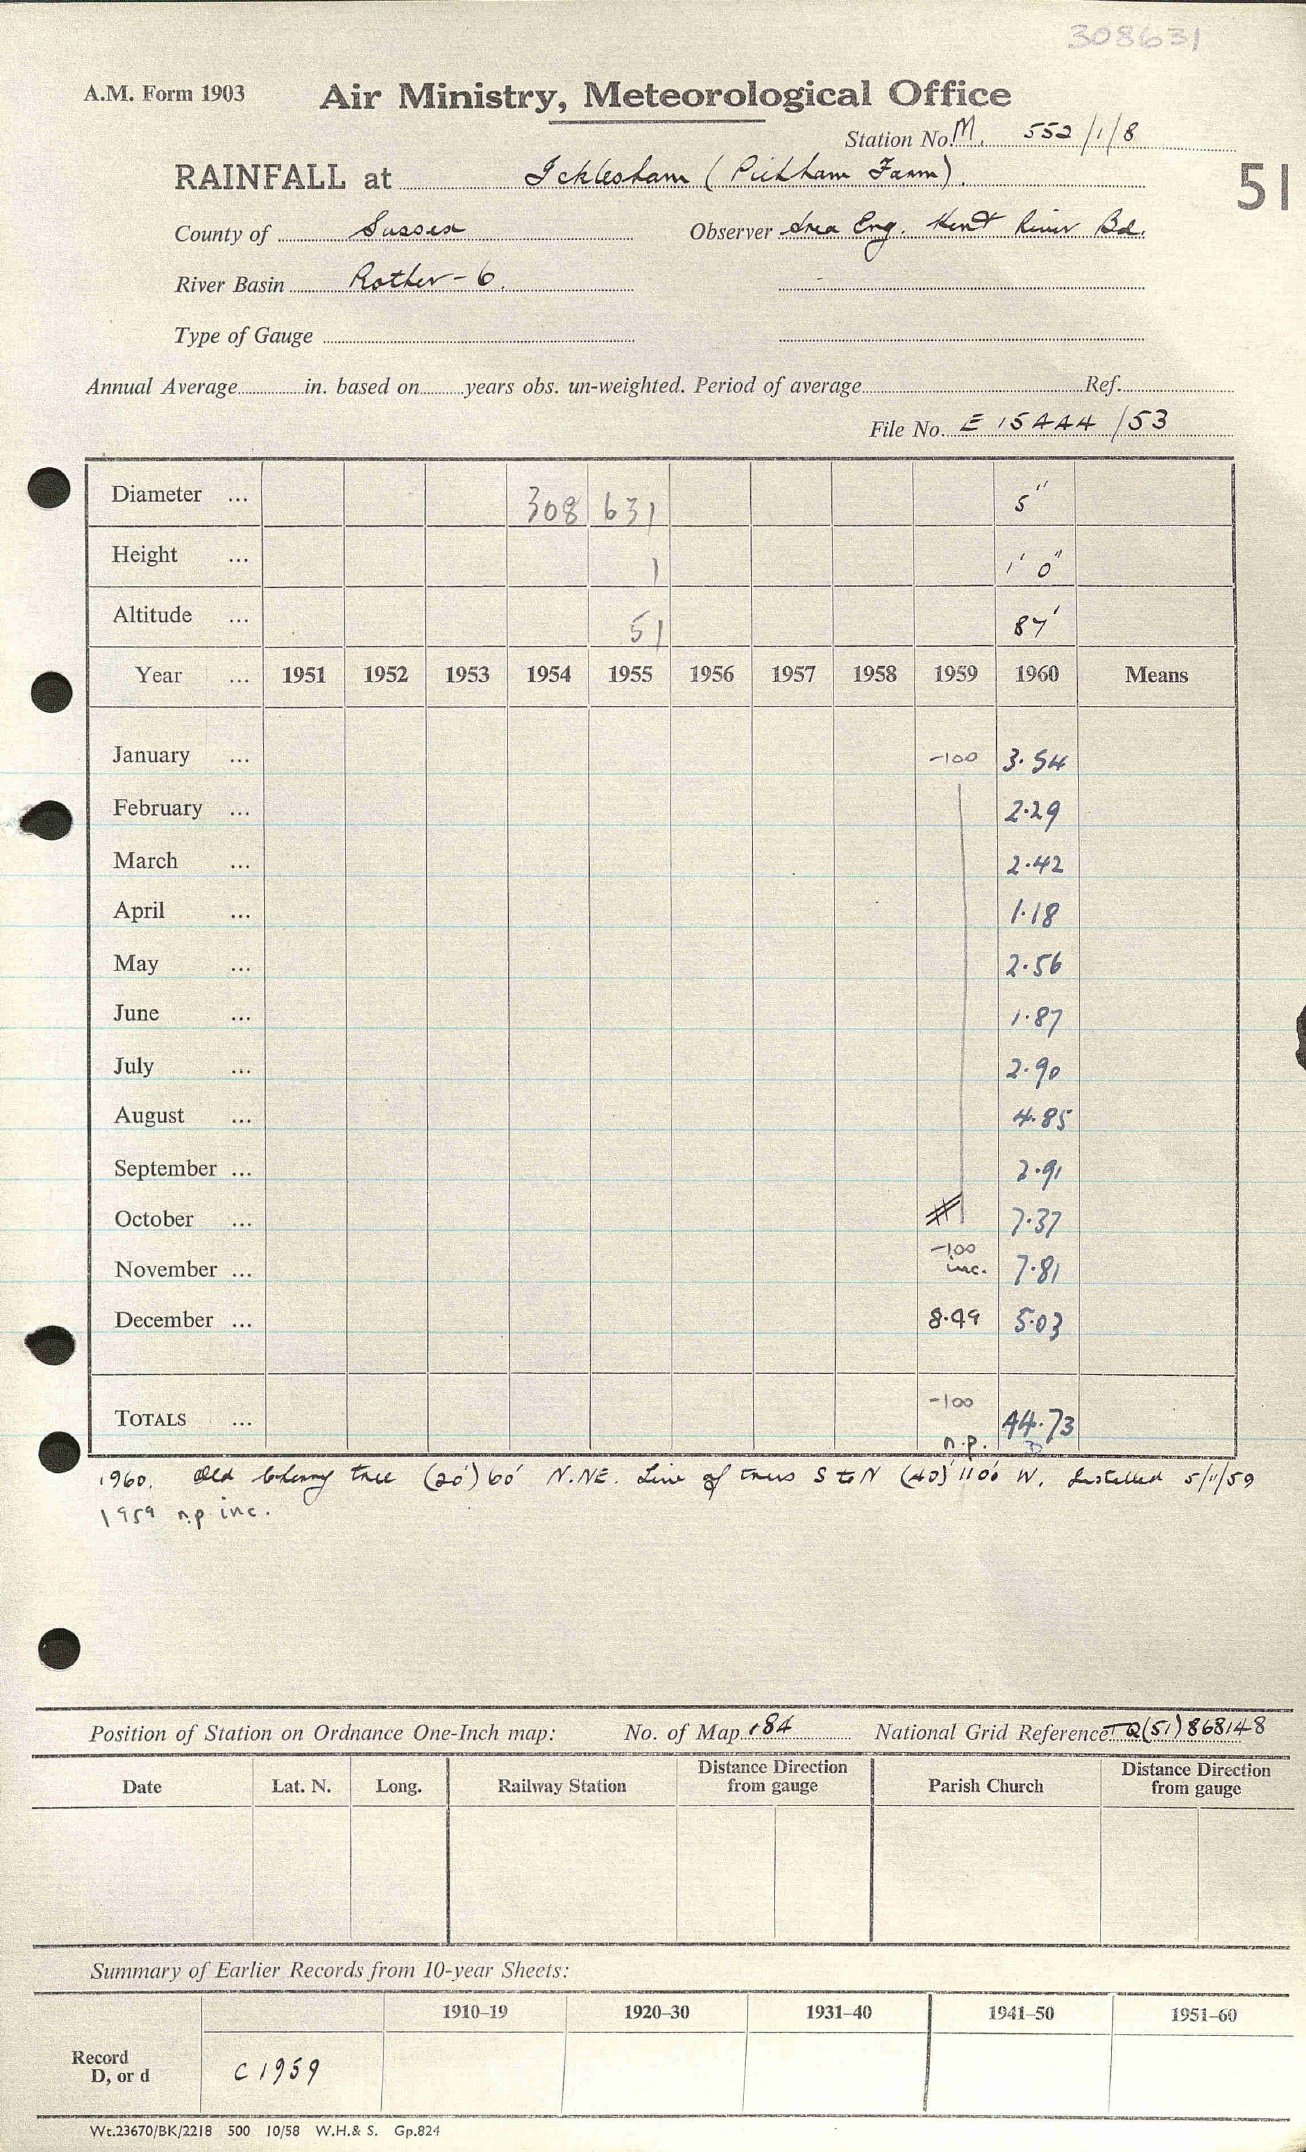 308631
A.M. Form 1903 Air Ministry, Meteorological Office
Station No. M. 552/1/8
RAINFALL at Icklesham (Pickham Farm).
51
County of Sussex Observer Area Eng. Kent River Bd.
River Basin Rother - 6.
Type of Gauge
Annual Average in. based on years obs. un-weighted. Period of average Ref.
File No. E 15444/53
Diameter ... 308 631 5"
Height ... 1 1' 0"
Altitude ... 51 87'
Year ... 1951 1952 1953 1954 1955 1956 1957 1958 1959 1960 Means
January ... -100 3.54
February ... 2.29
March ... 2.42
April ... 1.18
May ... 2.56
June ... 1.87
July ... 2.90
August ... 4.85
September ... 2.91
October ... 7.37
November ... -100 inc. 7.81
December ... 8.49 5.03
TOTALS ... -100 n.p. 44.73
1960. Old Cherry tree (20') 60' N.NE. Line of trees S to N (40') 100' W. Installed 5/11/59
1959 n.p inc.
Position of Station on Ordnance One-Inch map: No. of Map 184 National Grid Reference TQ(51)868148
Date Lat. N. Long. Railway Station Distance Direction from gauge Parish Church Distance Direction from gauge
Summary of Earlier Records from 10-year Sheets:
1910–19 1920–30 1931–40 1941–50 1951–60
Record
D, or d C 1959
Wt.23670/BK/2218 500 10/58 W.H.& S. Gp.824